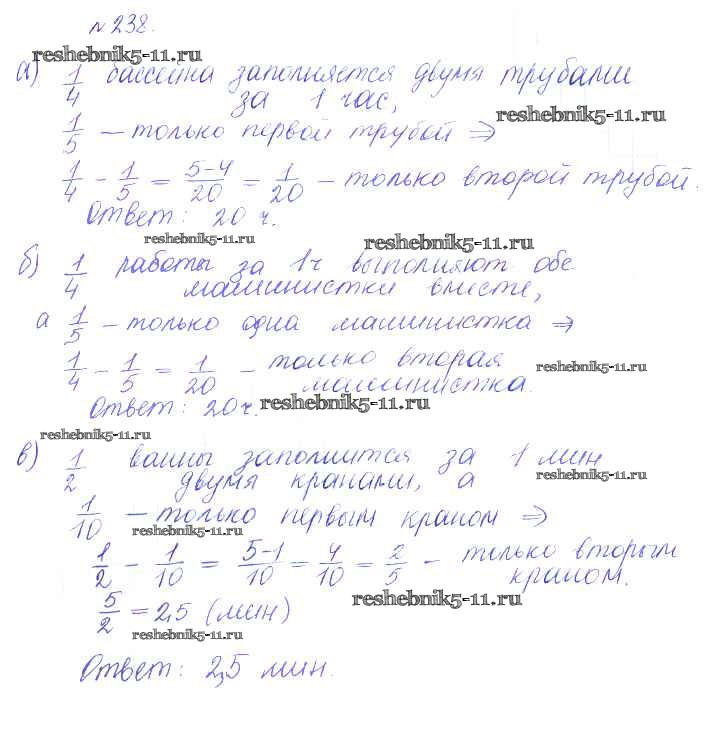 №238.
reshebnik5-11.ru
а) 1/4 бассейна заполняется двумя трубами
за 1 час,
reshebnik5-11.ru
1/5 – только первой трубой ⇒
1/4 – 1/5 = 5–4/20 = 1/20 – только второй трубой.
Ответ: 20 ч.
reshebnik5-11.ru
reshebnik5-11.ru
б) 1/4 работы за 1ч выполняют обе
машинистки вместе,
а 1/5 – только одна машинистка ⇒
1/4 – 1/5 = 1/20 – только вторая
машинистка.
reshebnik5-11.ru
Ответ: 20ч.
reshebnik5-11.ru
reshebnik5-11.ru
в) 1/2 ванны заполнится за 1 мин
двумя кранами, а
reshebnik5-11.ru
1/10 – только первым краном ⇒
reshebnik5-11.ru
1/2 – 1/10 = 5–1/10 = 4/10 = 2/5 – только вторым
краном.
reshebnik5-11.ru
5/2 = 2,5 (мин)
reshebnik5-11.ru
Ответ: 2,5 мин.